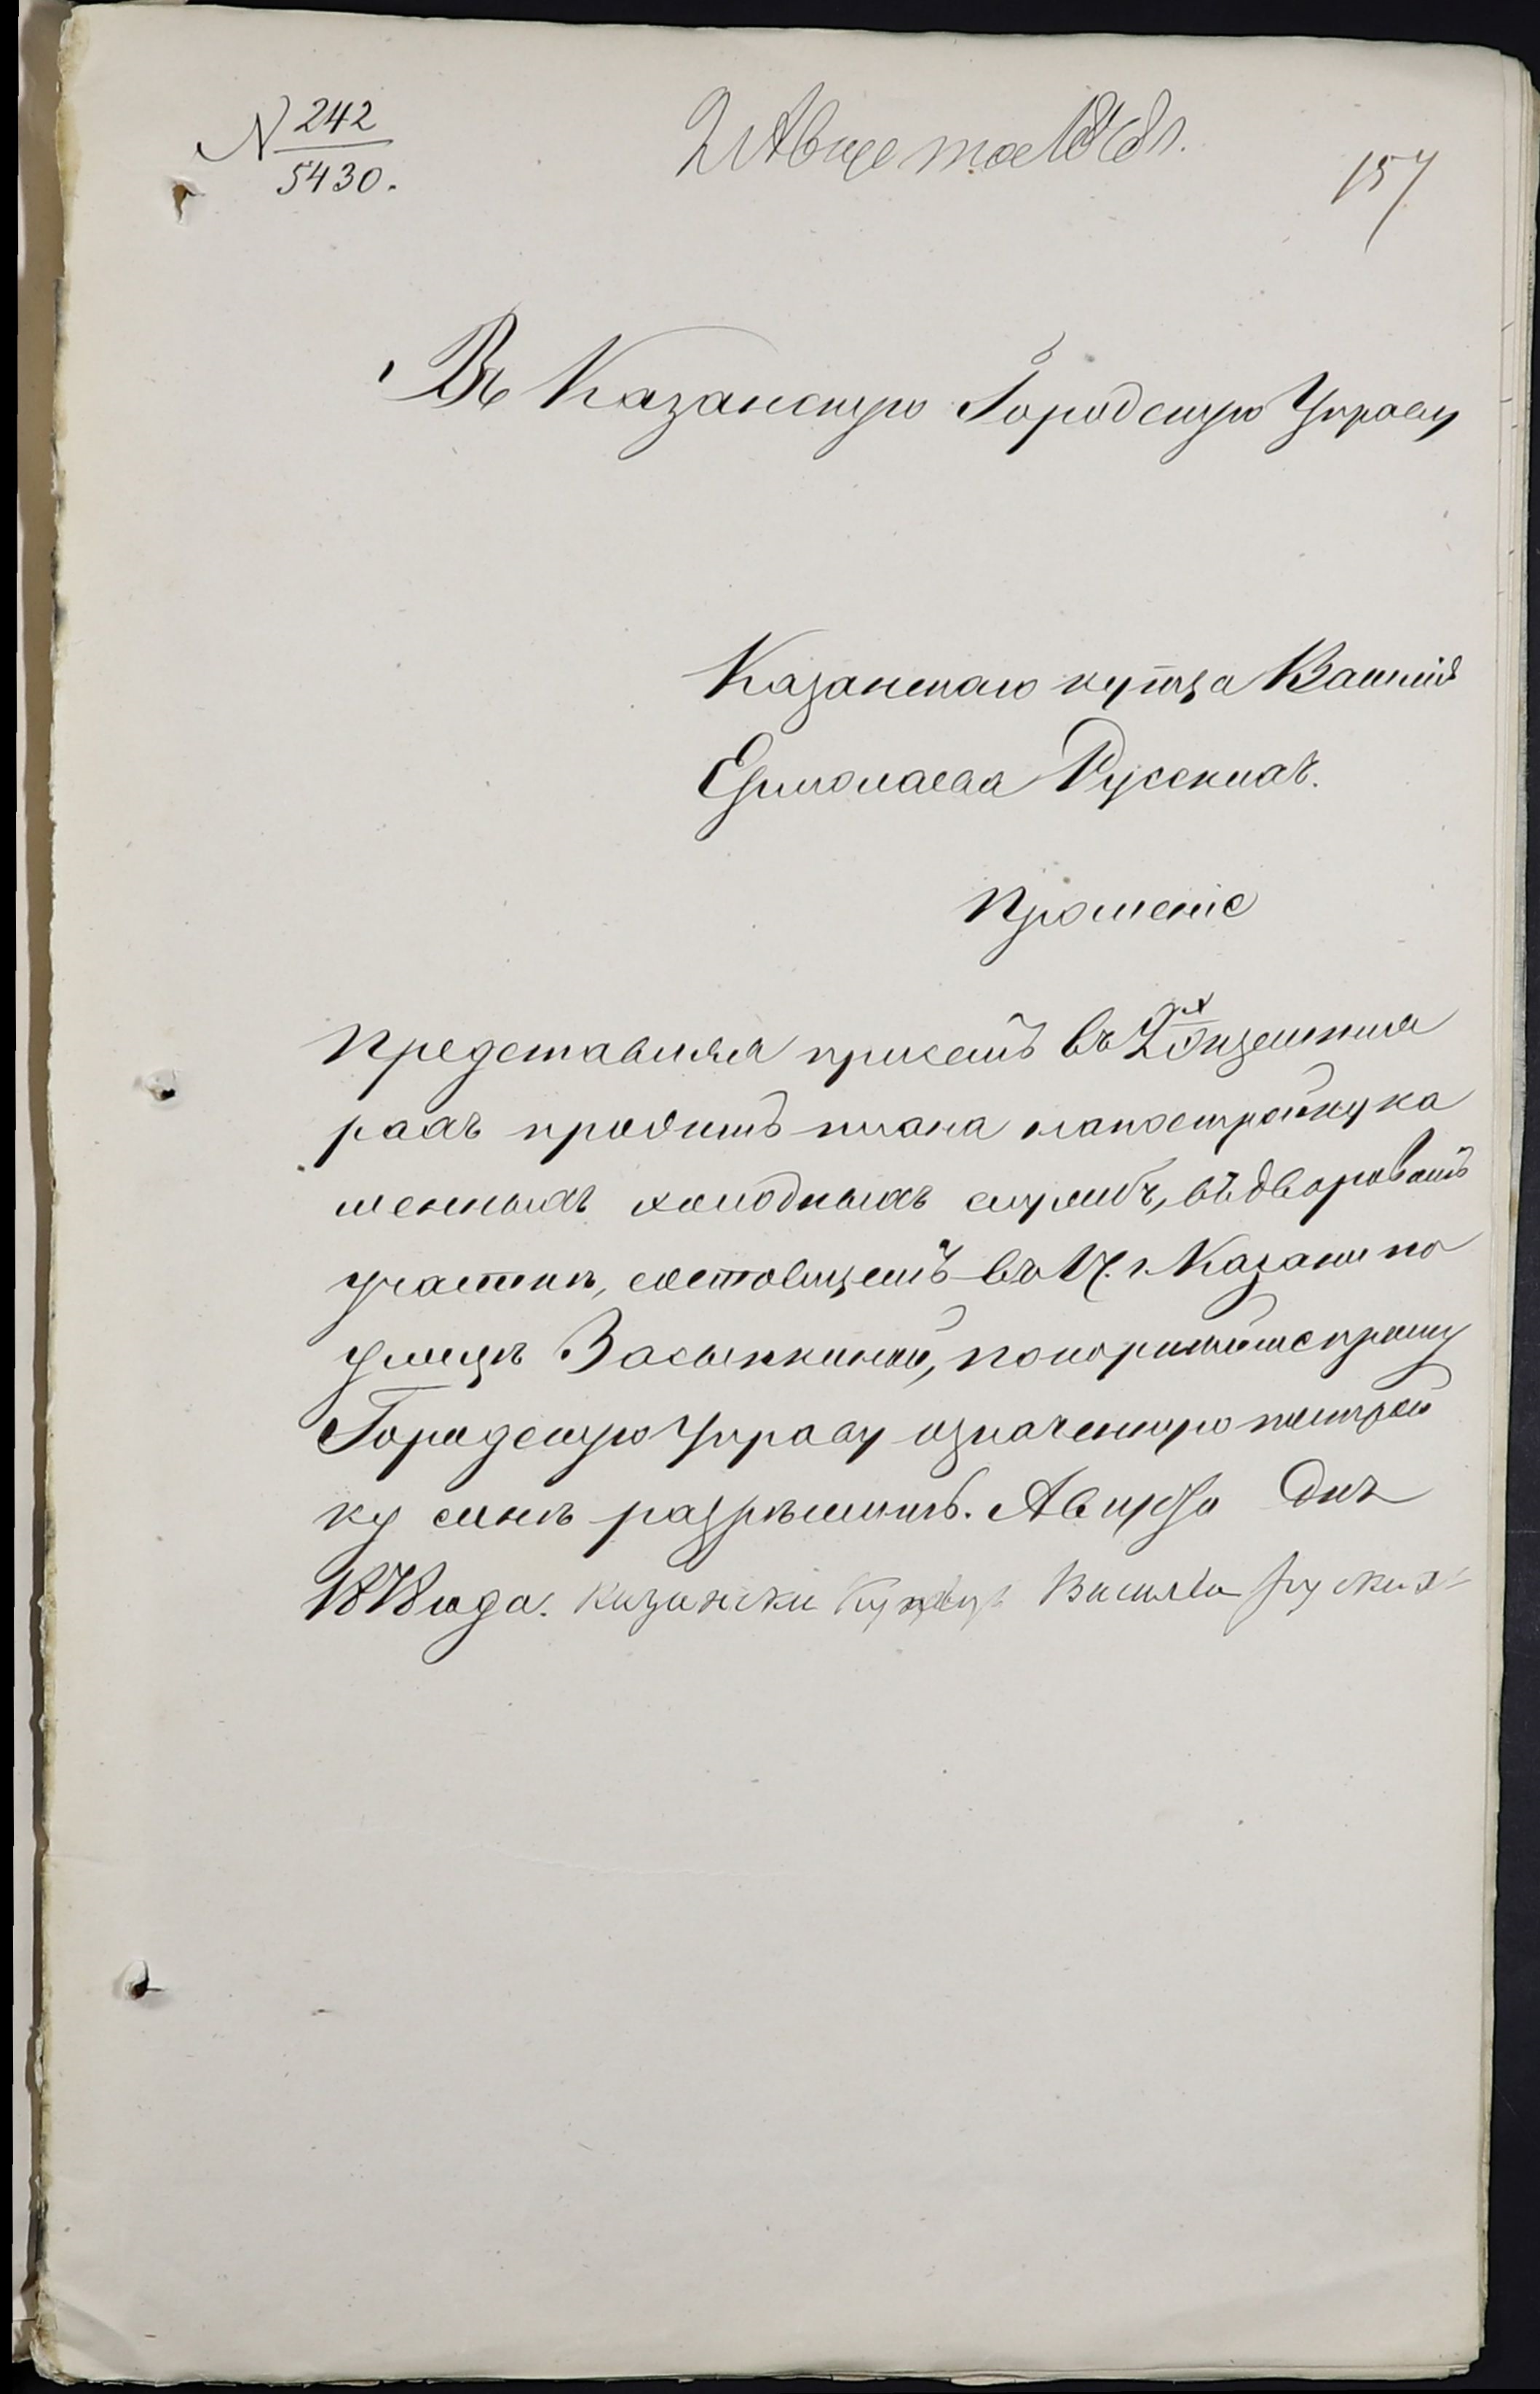 N 242
5430.
2 Августа 1878 г.
157
Въ Казанскую Городскую Управу
Казанскаго купца Василія
Ермолаева Русскихъ.
Прошеніе
Представляя присемъ въ 2х экземпля
рахъ проэктъ плана на постройку ка
менныхъ холодныхъ службъ, въ дворовомъ
участкѣ, состоящемъ въ 1 Ч. г. Казани по
улицѣ Засыпкиной, покорнѣйше прошу
Городскую Управу означенную построй
ку мнѣ разрѣшить. Августа дня
1878 года. Казански Купецъ Василеи Руских